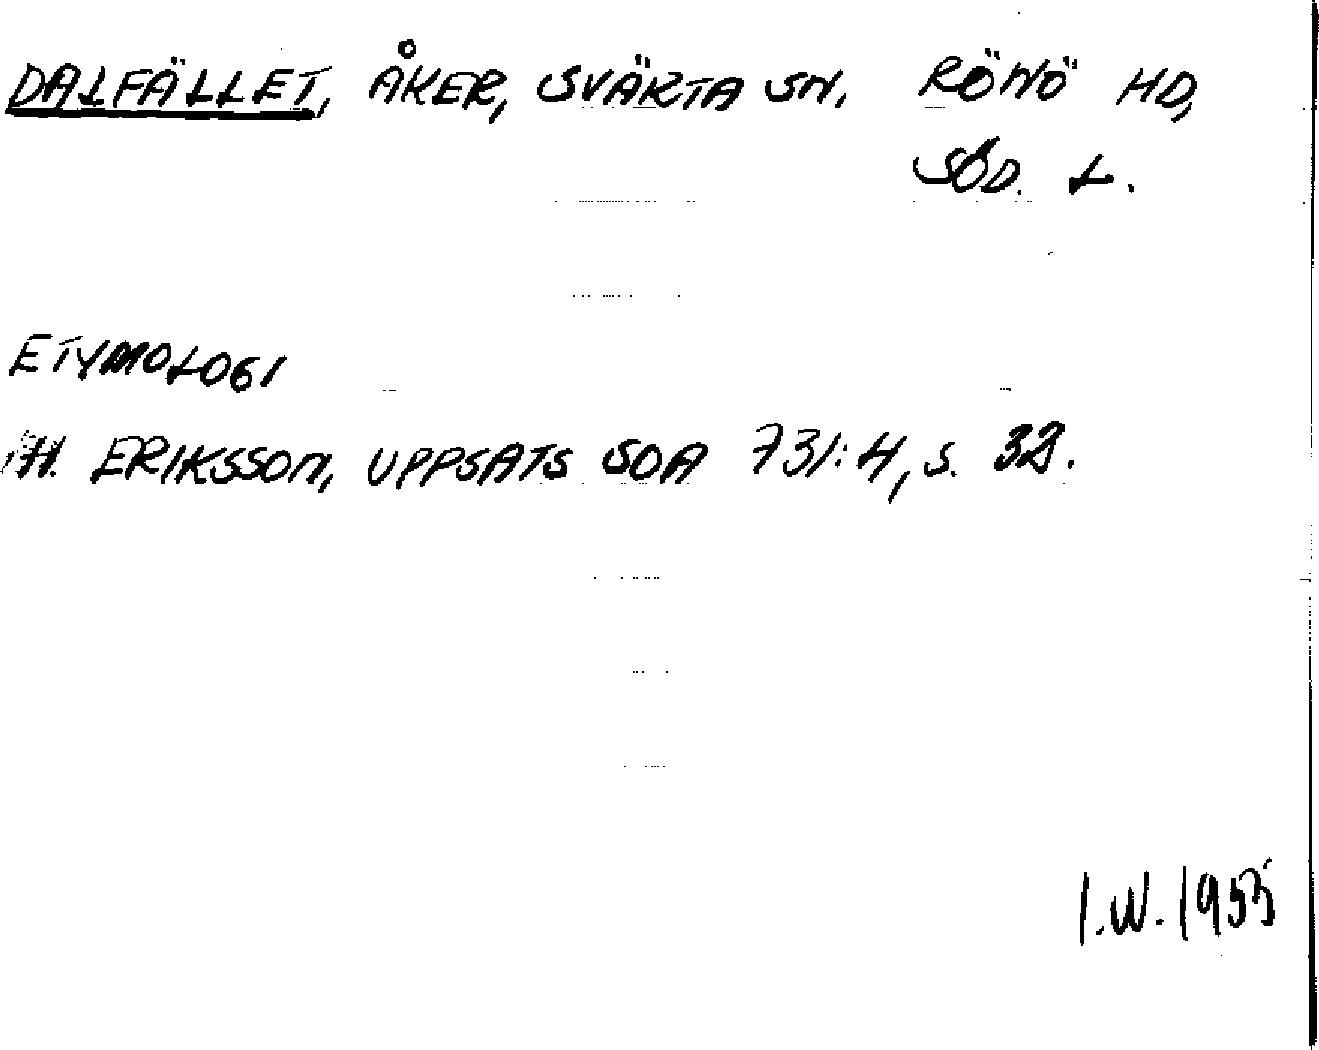 DALFÄLLET, ÅKER, SVÄRTA SN. RÖNÖ HD,
SÖD. L.
ETYMOLOGI
H. ERIKSSON, UPPSATS SOA 731:4, S. 32.
I.W. 1955